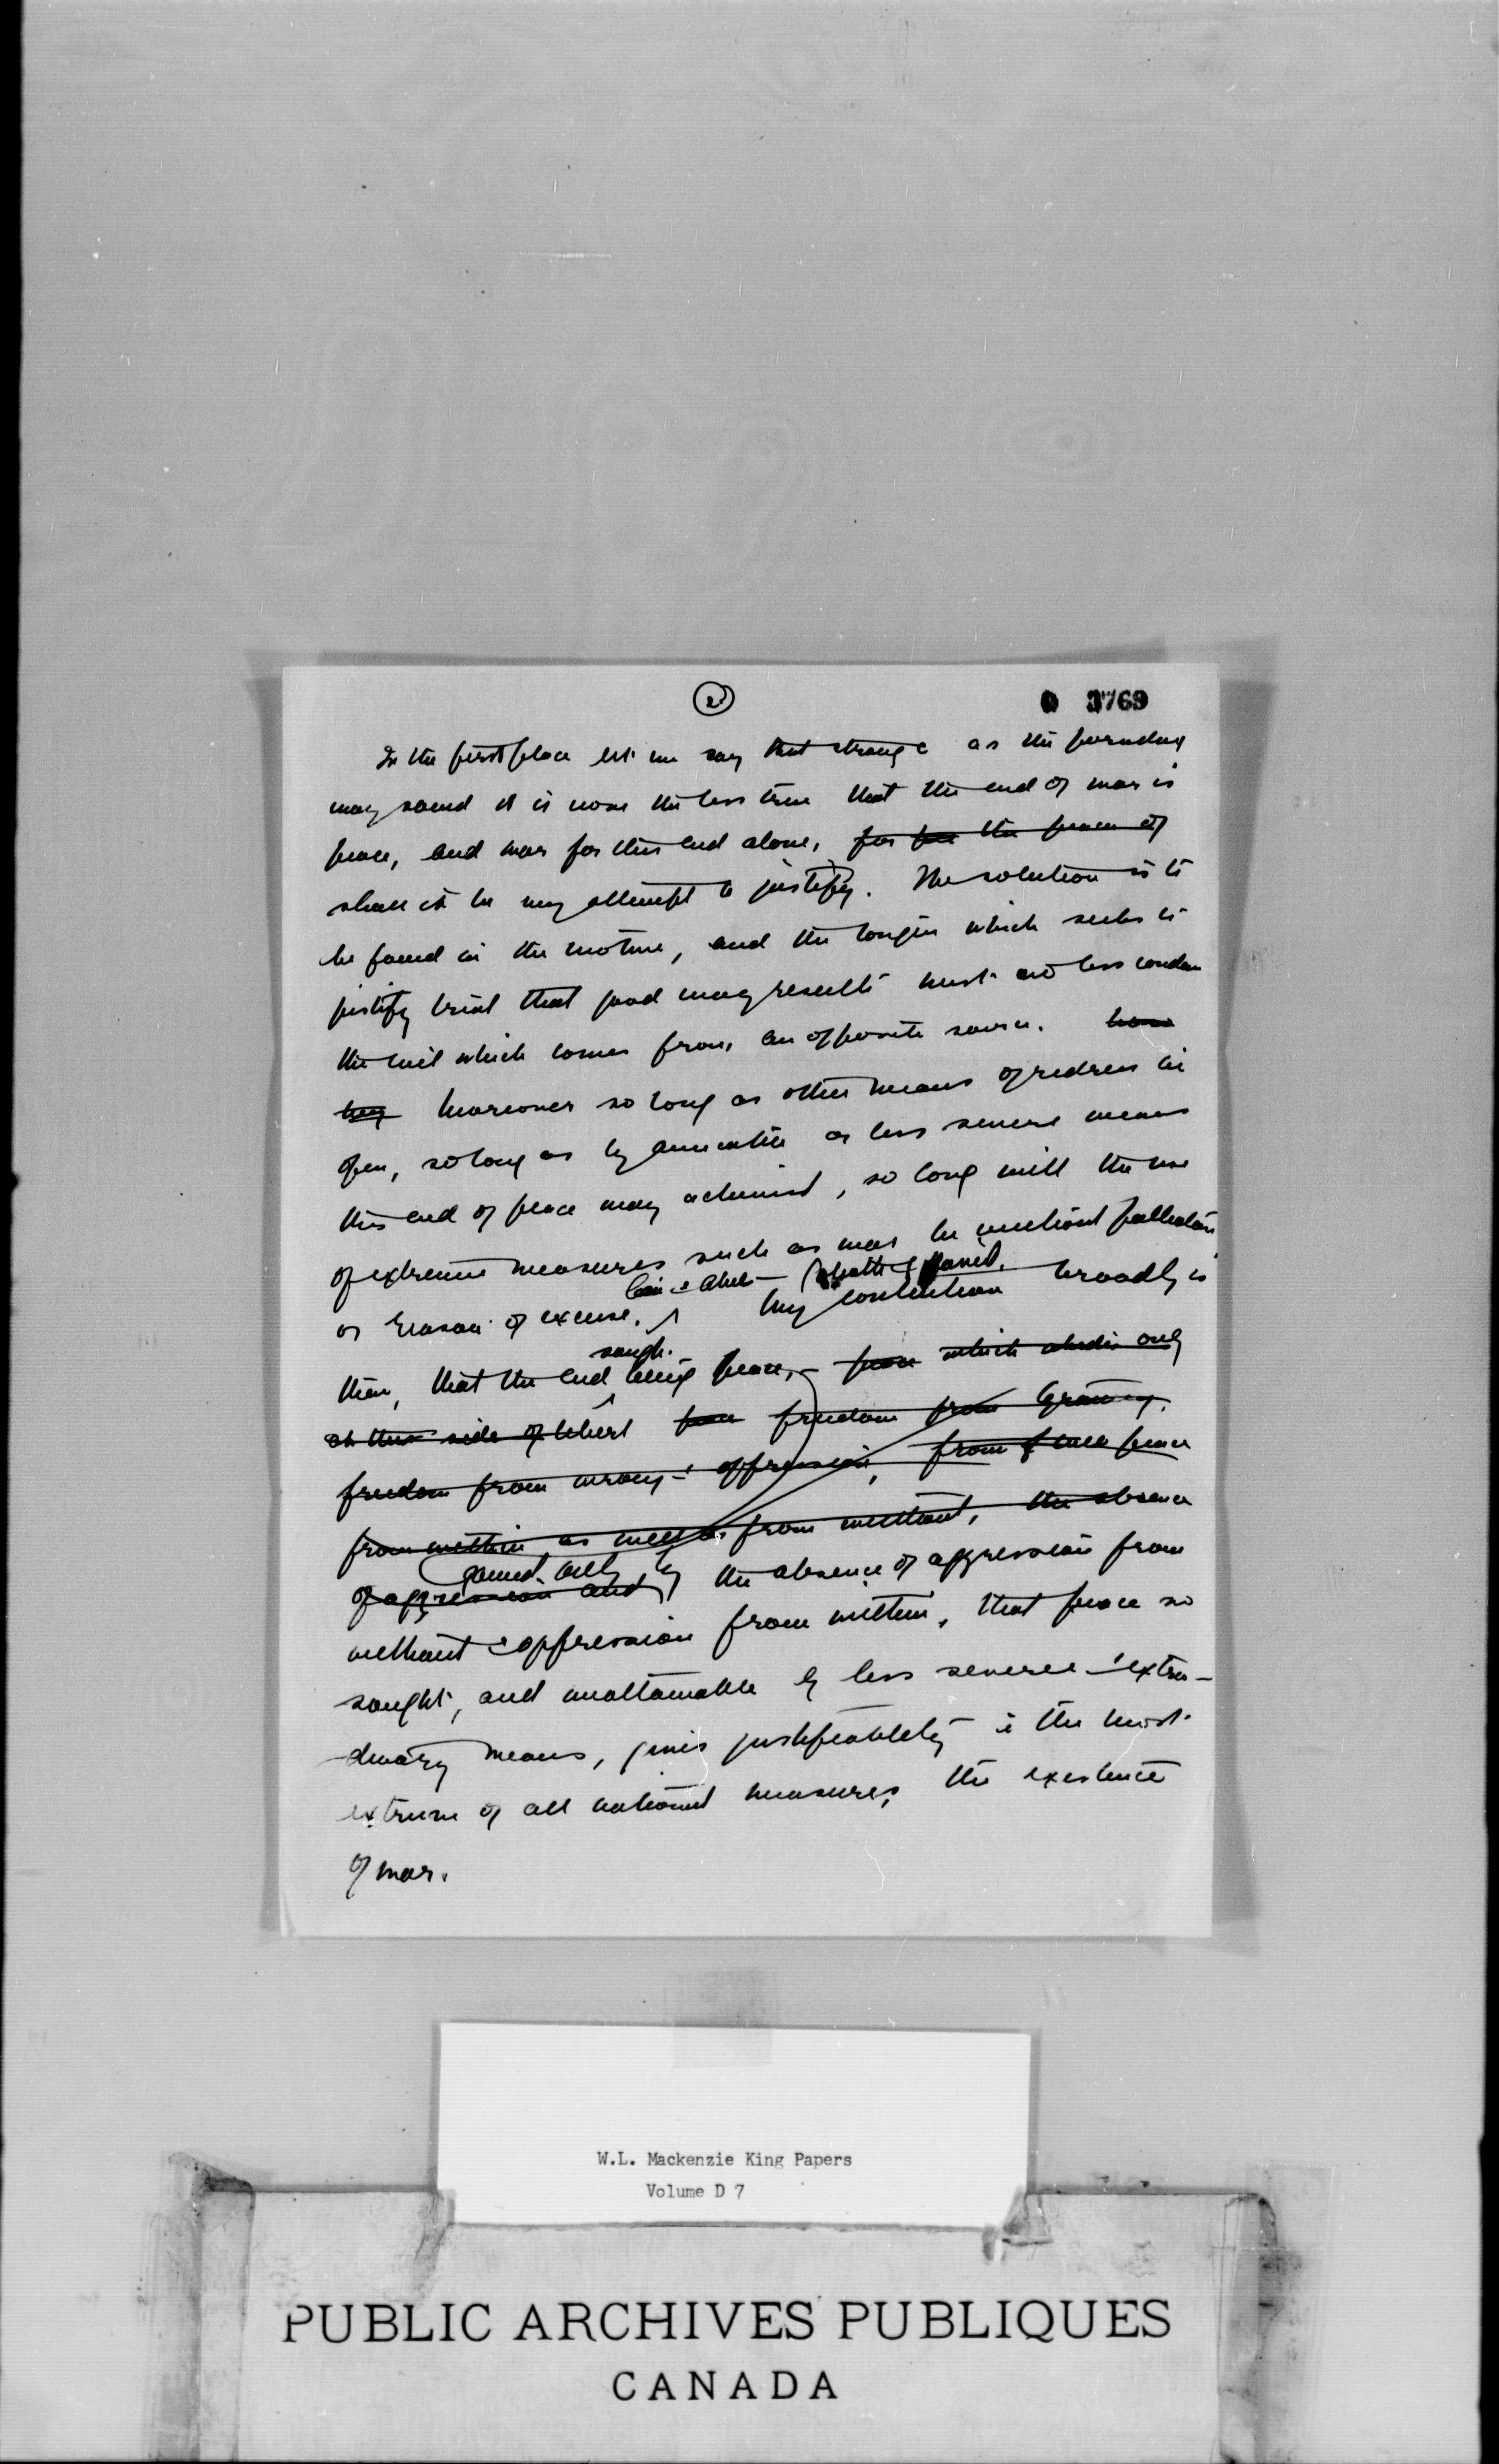 2
3769
In the first place let me say that strange as the paradox
may sound it is none the less true that the end of war is
peace, and war for this end alone, for the peace of
shall it be my attempt to justify. The solution is to
be found in the motive, and the which seeks to
justify that good may result must no less condem
the evil which comes from an opposite source.
Moreover so long as other means of redress lie
open, so long as by or less severe means
this end of peace may achieved, so long will the use
of extreme measures such as war be without palliation
Cain & Abel — Goliath & David.
or reason of excuse. My contention broadly is
sought.
then, that the end being peace, — which only
side of freedom from tyranny,
freedom from wrong & oppression, from peace
from within as well as from without, the absence
gained only by
of aggression and the absence of aggression from
without & oppression from within, that peace so
sought, and unattainable by less severe & extra-
dinary means, gives justifiability to the most
extreme of all national measures, the existence
of war.
W.L. Mackenzie King Papers
Volume D 7
PUBLIC ARCHIVES PUBLIQUES
CANADA